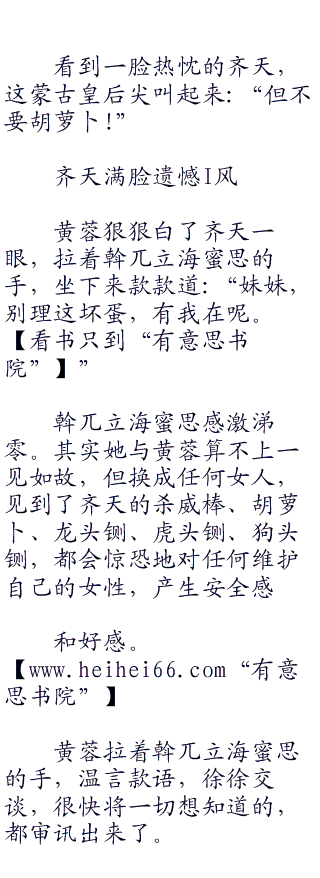 看到一脸热忱的齐天，
这蒙古皇后尖叫起来：“但不
要胡萝卜！”
齐天满脸遗憾I风
黄蓉狠狠白了齐天一
眼，拉着斡兀立海蜜思的
手，坐下来款款道：“妹妹，
别理这坏蛋，有我在呢。
【看书只到“有意思书
院”】”
斡兀立海蜜思感激涕
零。其实她与黄蓉算不上一
见如故，但换成任何女人，
见到了齐天的杀威棒、胡萝
卜、龙头铡、虎头铡、狗头
铡，都会惊恐地对任何维护
自己的女性，产生安全感
和好感。
【www.heihei66.com“有意
思书院”】
黄蓉拉着斡兀立海蜜思
的手，温言款语，徐徐交
谈，很快将一切想知道的，
都审讯出来了。